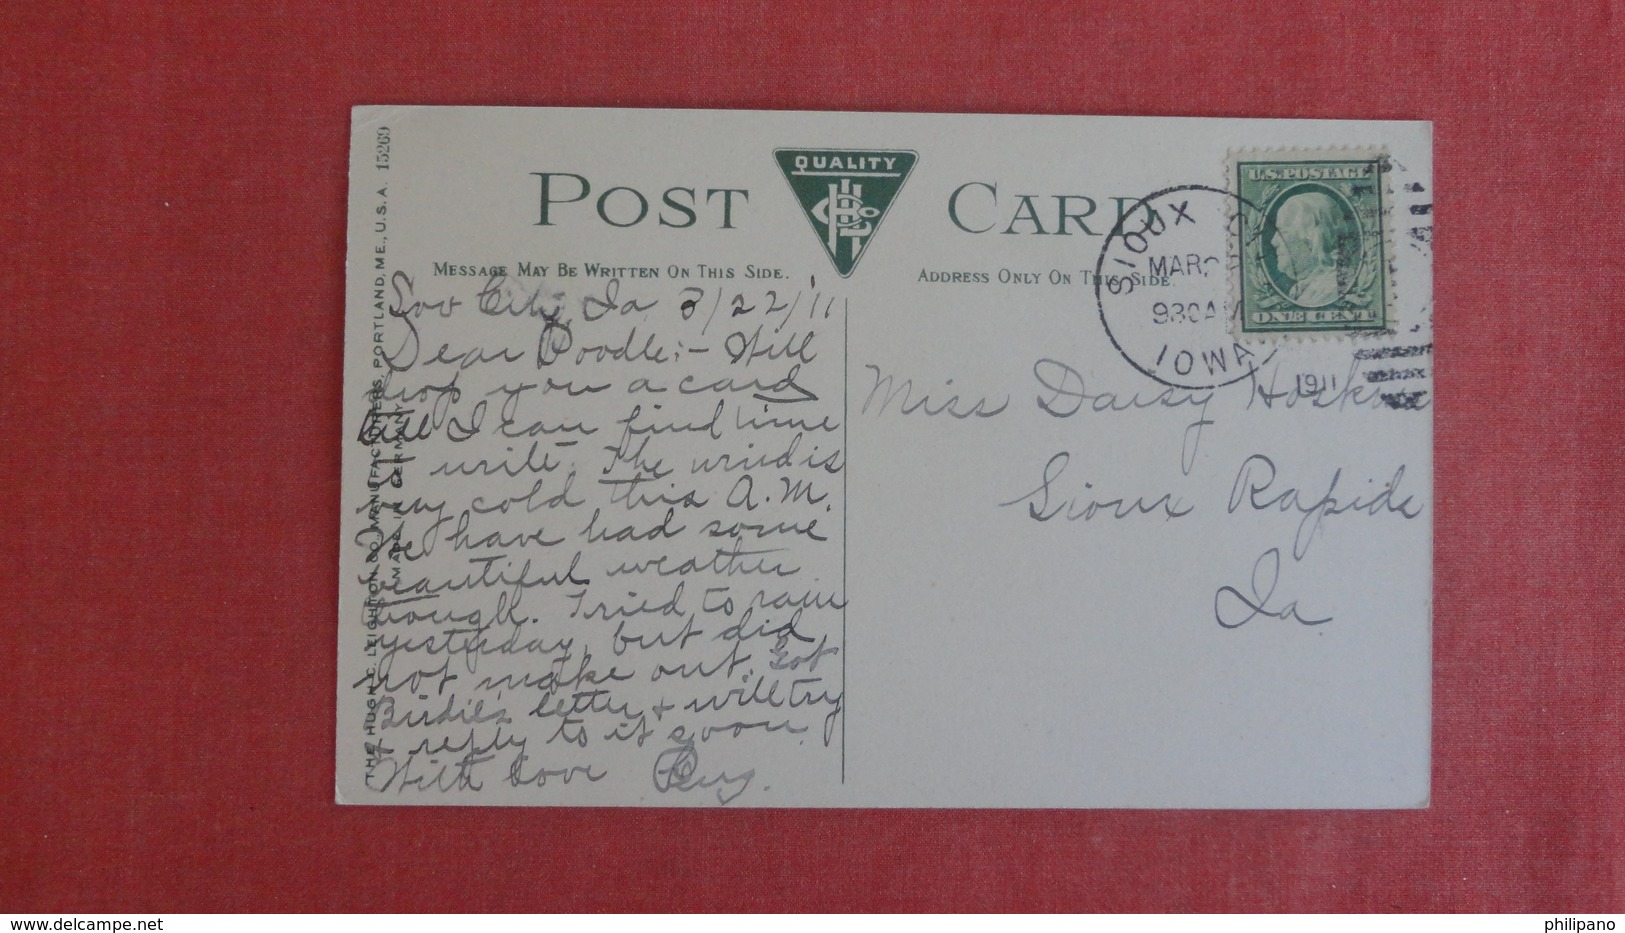 THE HUGH C. LEIGHTON CO., MANUFACTURERS, PORTLAND, ME., U.S.A. 15269
MADE IN GERMANY
POST CARD
QUALITY
MESSAGE MAY BE WRITTEN ON THIS SIDE.
ADDRESS ONLY ON THIS SIDE.
Soo City, Ia 3/22/'11
Dear Poodle:- Will
drop you a card
till I can find time
to write. The wind is
very cold this A.M.
We have had some
beautiful weather
though. Tried to rain
yesterday, but did
not make out. Got
Birdie's letter & will try
& reply to it soon.
With Love
SIOUX
MAR
930AM
IOWA
1911
U.S. POSTAGE
ONE CENT
Miss Daisy Hoskins
Sioux Rapids
Ia
delcampe.net
philipano